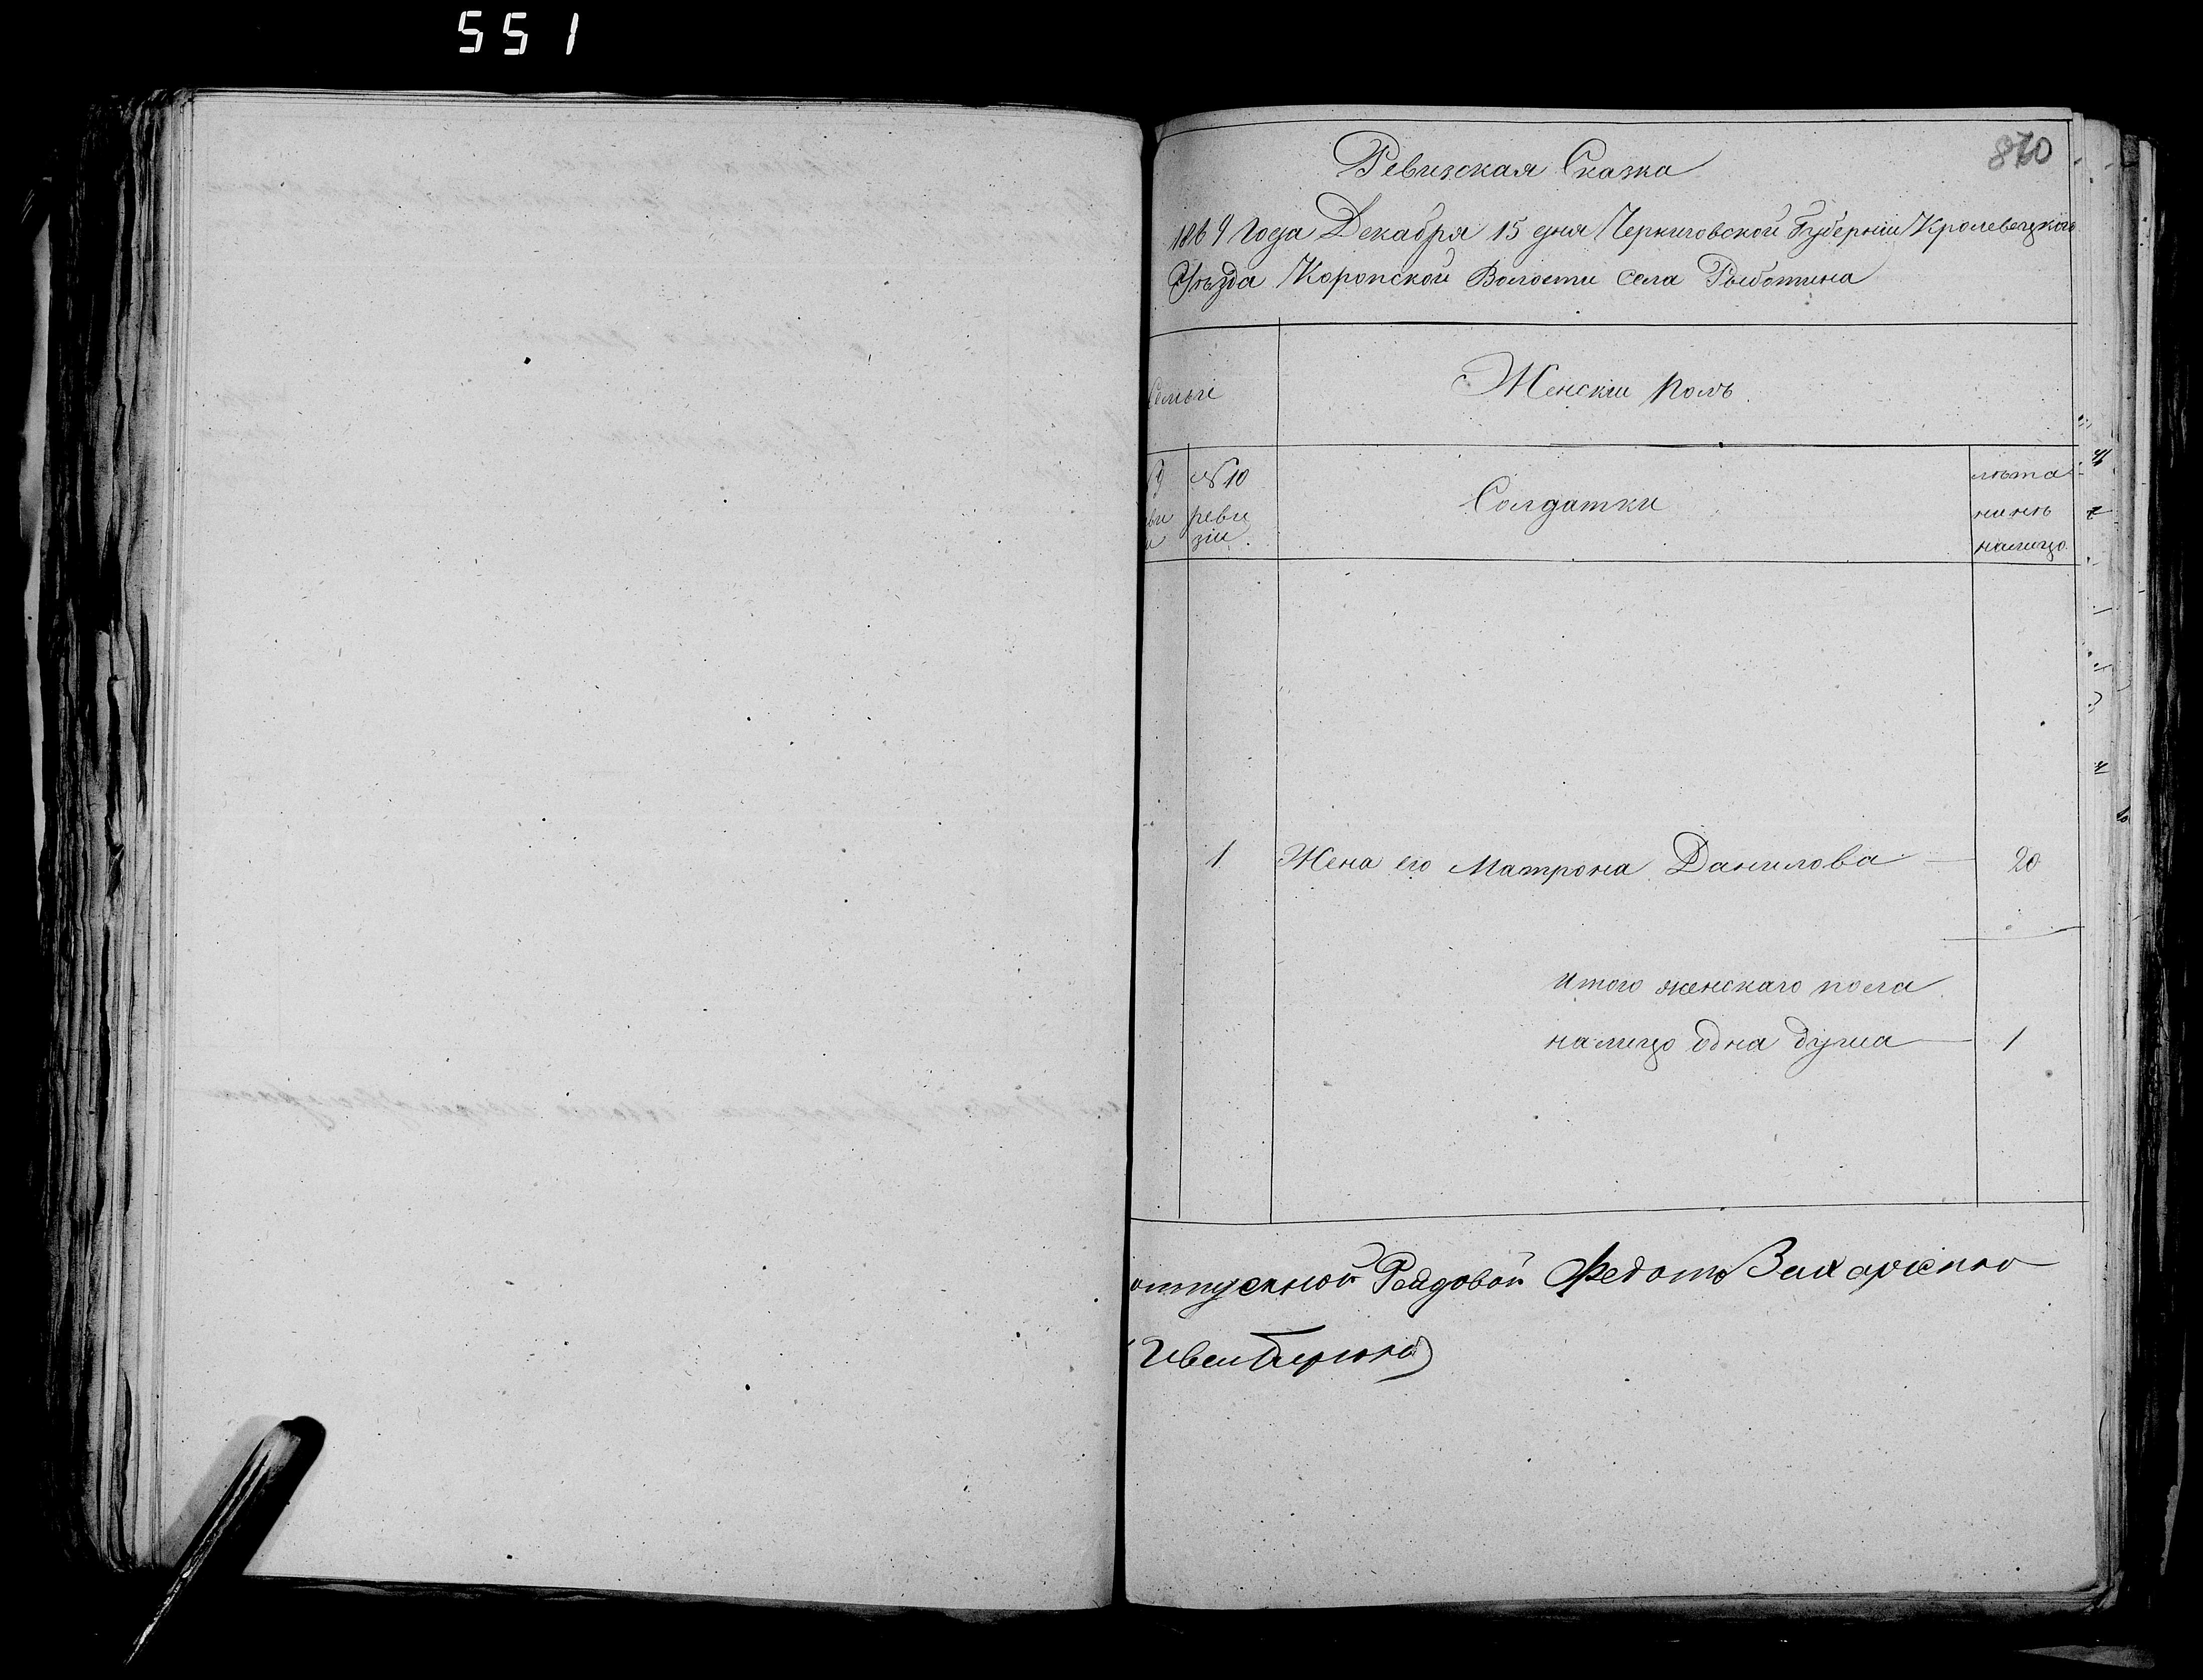 551
870
Ревизская Сказка
1864 Года Декабря 15 дня Черниговской Губернии Кролевецкого
Уѣзда Коропской Волости села Рыботина
Семьи
Женски полъ
№ 10
реви
зіи
Солдатки
лѣта
нинѣ
налицо
1 Жена его Матрона Данилова 20
Итого женскаго пола
налицо одна душа 1
отпускной Рядовой Федотъ Захарченко